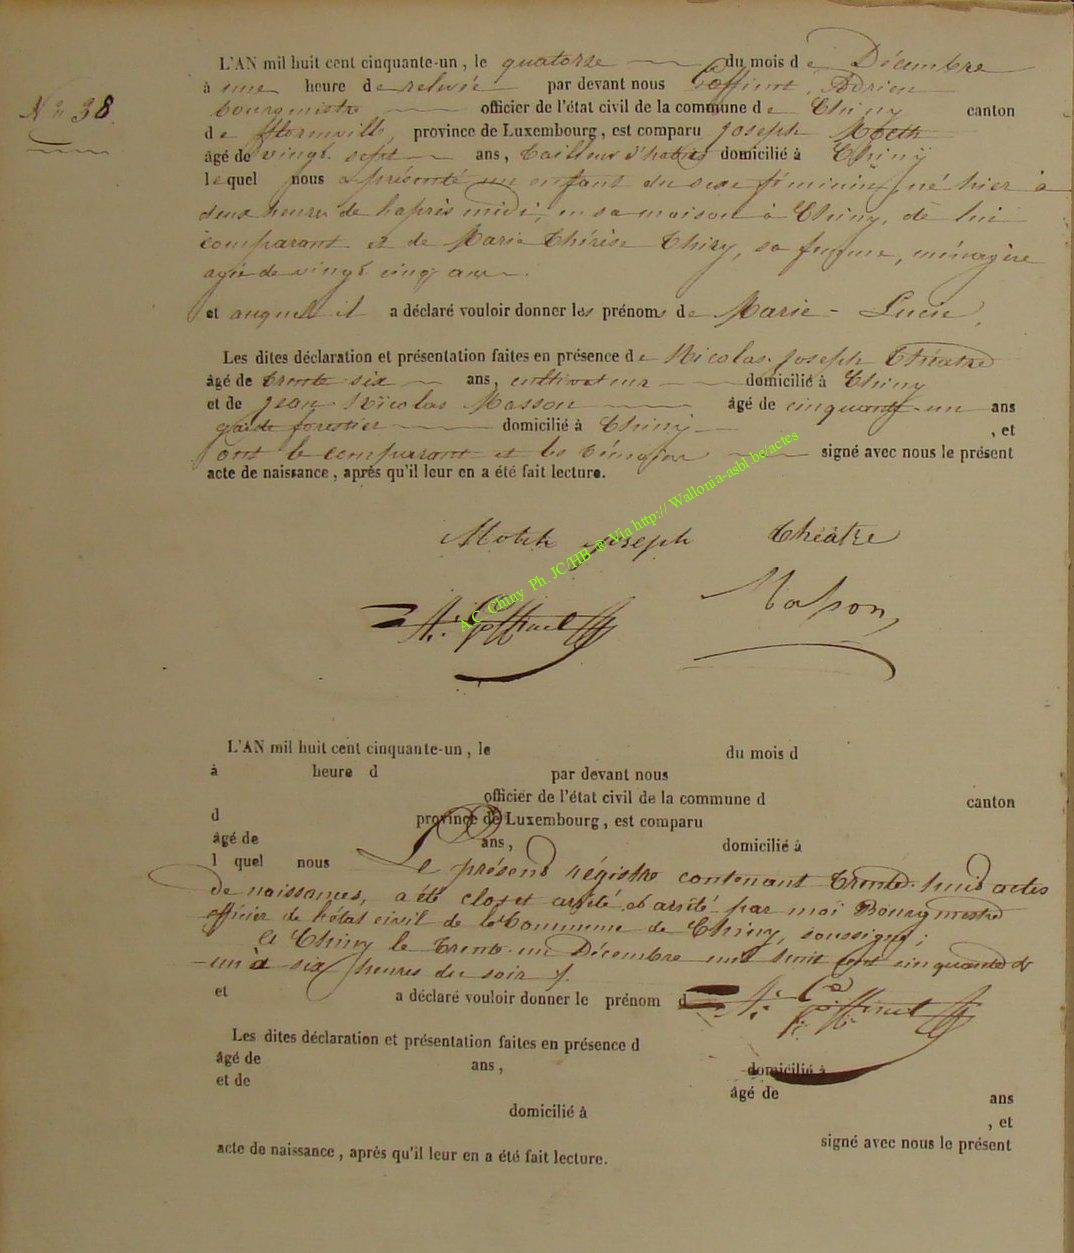 N° 38.
L'AN mil huit cent cinquante-un, le quatorze du mois de Décembre
à une heure de relevée par devant nous Goffinet, Adrien
bourgmestre officier de l'état civil de la commune de Chiny canton
de florenville, province de Luxembourg, est comparu Joseph
âgé de vingt sept ans, tailleur d'habits domicilié à Chiny
lequel nous a présenté un enfant du sexe féminin, né hier à
deux heures de l'après midi, en sa maison à Chiny, de lui
comparant et de Marie Thérèse Thiry, sa femme, ménagère
agée de vingt cinq ans.
et auquel il a déclaré vouloir donner les prénoms de Marie - Lucie,
Les dites déclaration et présentation faites en présence de Nicolas Joseph Théatre
âgé de trente six ans, cultivateur domicilié à Chiny
et de Jean Nicolas Masson âgé de cinquante un ans
garde forestier domicilié à Chiny , et
ont le comparant et les témoins signé avec nous le présent
acte de naissance, après qu'il leur en a été fait lecture.
Joseph Théâtre
A. Goffinet Masson
A.C. Chiny Ph. JC/HB ® Via http:// Wallonia-asbl.be/actes
L'AN mil huit cent cinquante-un, le du mois d
à heure d par devant nous
officier de l'état civil de la commune d canton
d province de Luxembourg, est comparu
âgé de ans, domicilié à
l quel nous Le présent régistre contenant trente-huit actes
de naissances, a été clos et arrêté et arrêté par moi Bourgmestre
officier de l'état civil de la Commune de Chiny, soussigné;
A Chiny le trente-un Décembre mil huit cent cinquante &
un à six heures du soir
et a déclaré vouloir donner le prénom d A. Goffinet
Les dites déclaration et présentation faites en présence d
âgé de ans, domicilié à
et de âgé de ans
domicilié à , et
signé avec nous le présent
acte de naissance, après qu'il leur en a été fait lecture.